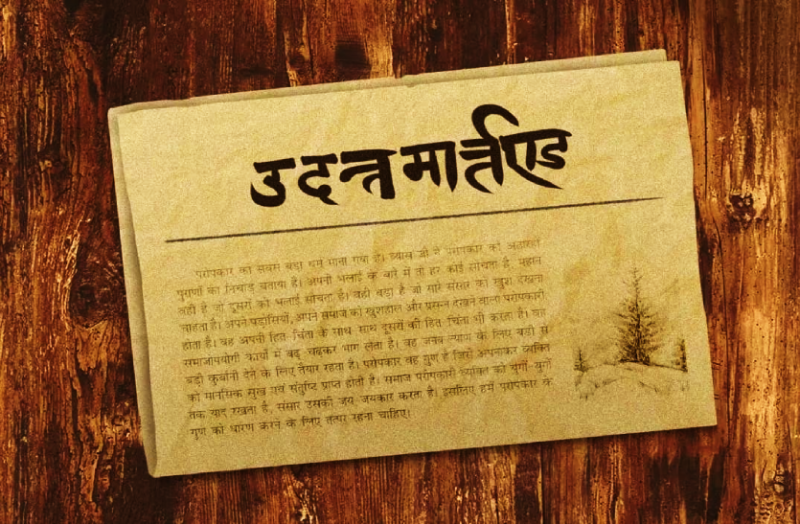 उदन्त मार्त्तण्ड
परोपकार को सबसे बड़ा धर्म माना गया है। व्यास जी ने परोपकार को अठारह
पुराणों का निचोड़ बताया है। अपनी भलाई के बारे में तो हर कोई सोचता है, महान
वही है जो दूसरों की भलाई सोचता है। वही बड़ा है जो सारे संसार को खुश देखना
चाहता है। अपने पड़ोसियों, अपने समाज को खुशहाल और प्रसन्न देखने वाला परोपकारी
होता है। वह अपनी हित-चिंता के साथ साथ दूसरों की हित चिंता भी करता है। वह
समाजोपयोगी कार्यों में बढ़ चढ़कर भाग लेता है। वह जनकल्याण के लिए बड़ी से
बड़ी कुर्बानी देने के लिए तैयार रहता है। परोपकार वह गुण है जिसे अपनाकर व्यक्ति
को मानसिक सुख एवं संतुष्टि प्राप्त होती है। समाज परोपकारी व्यक्ति को युगों-युगों
तक याद रखता है, संसार उसकी जय-जयकार करता है। इसलिए हमें परोपकार के
गुण को धारण करने के लिए तत्पर रहना चाहिए।